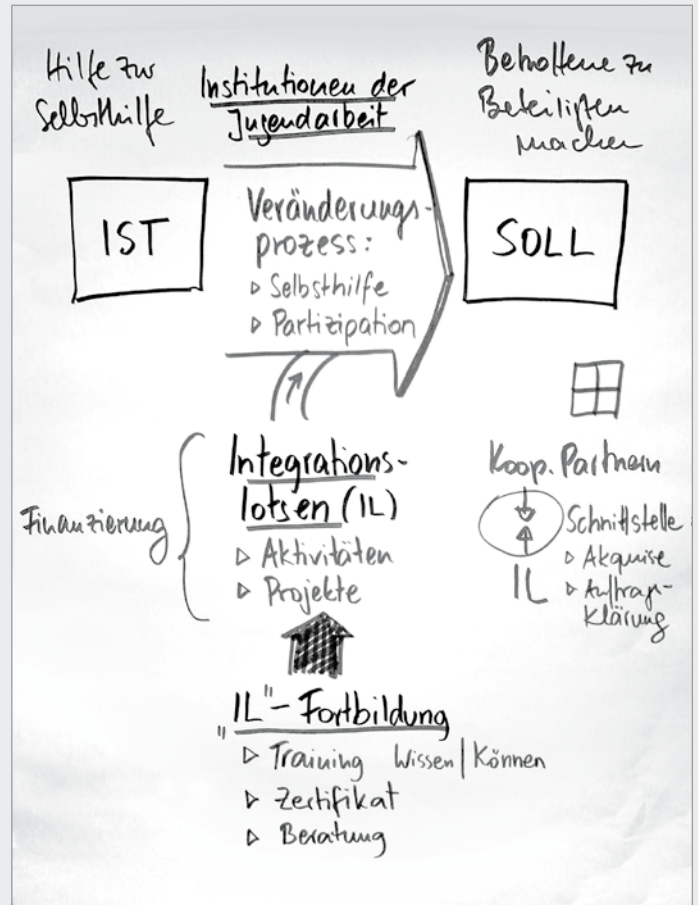 Hilfe zur
Selbsthilfe
Institutionen der
Jugendarbeit
Betroffene zu
Beteiligten
machen
IST
Veränderungs-
prozess:
▹ Selbsthilfe
▹ Partizipation
SOLL
Finanzierung
Integrations-
lotsen (IL)
▹ Aktivitäten
▹ Projekte
Koop. Partnern
Schnittstelle:
▹ Akquise
▹ Auftrags-
klärung
IL
"IL"-Fortbildung
▹ Training Wissen | Können
▹ Zertifikat
▹ Beratung